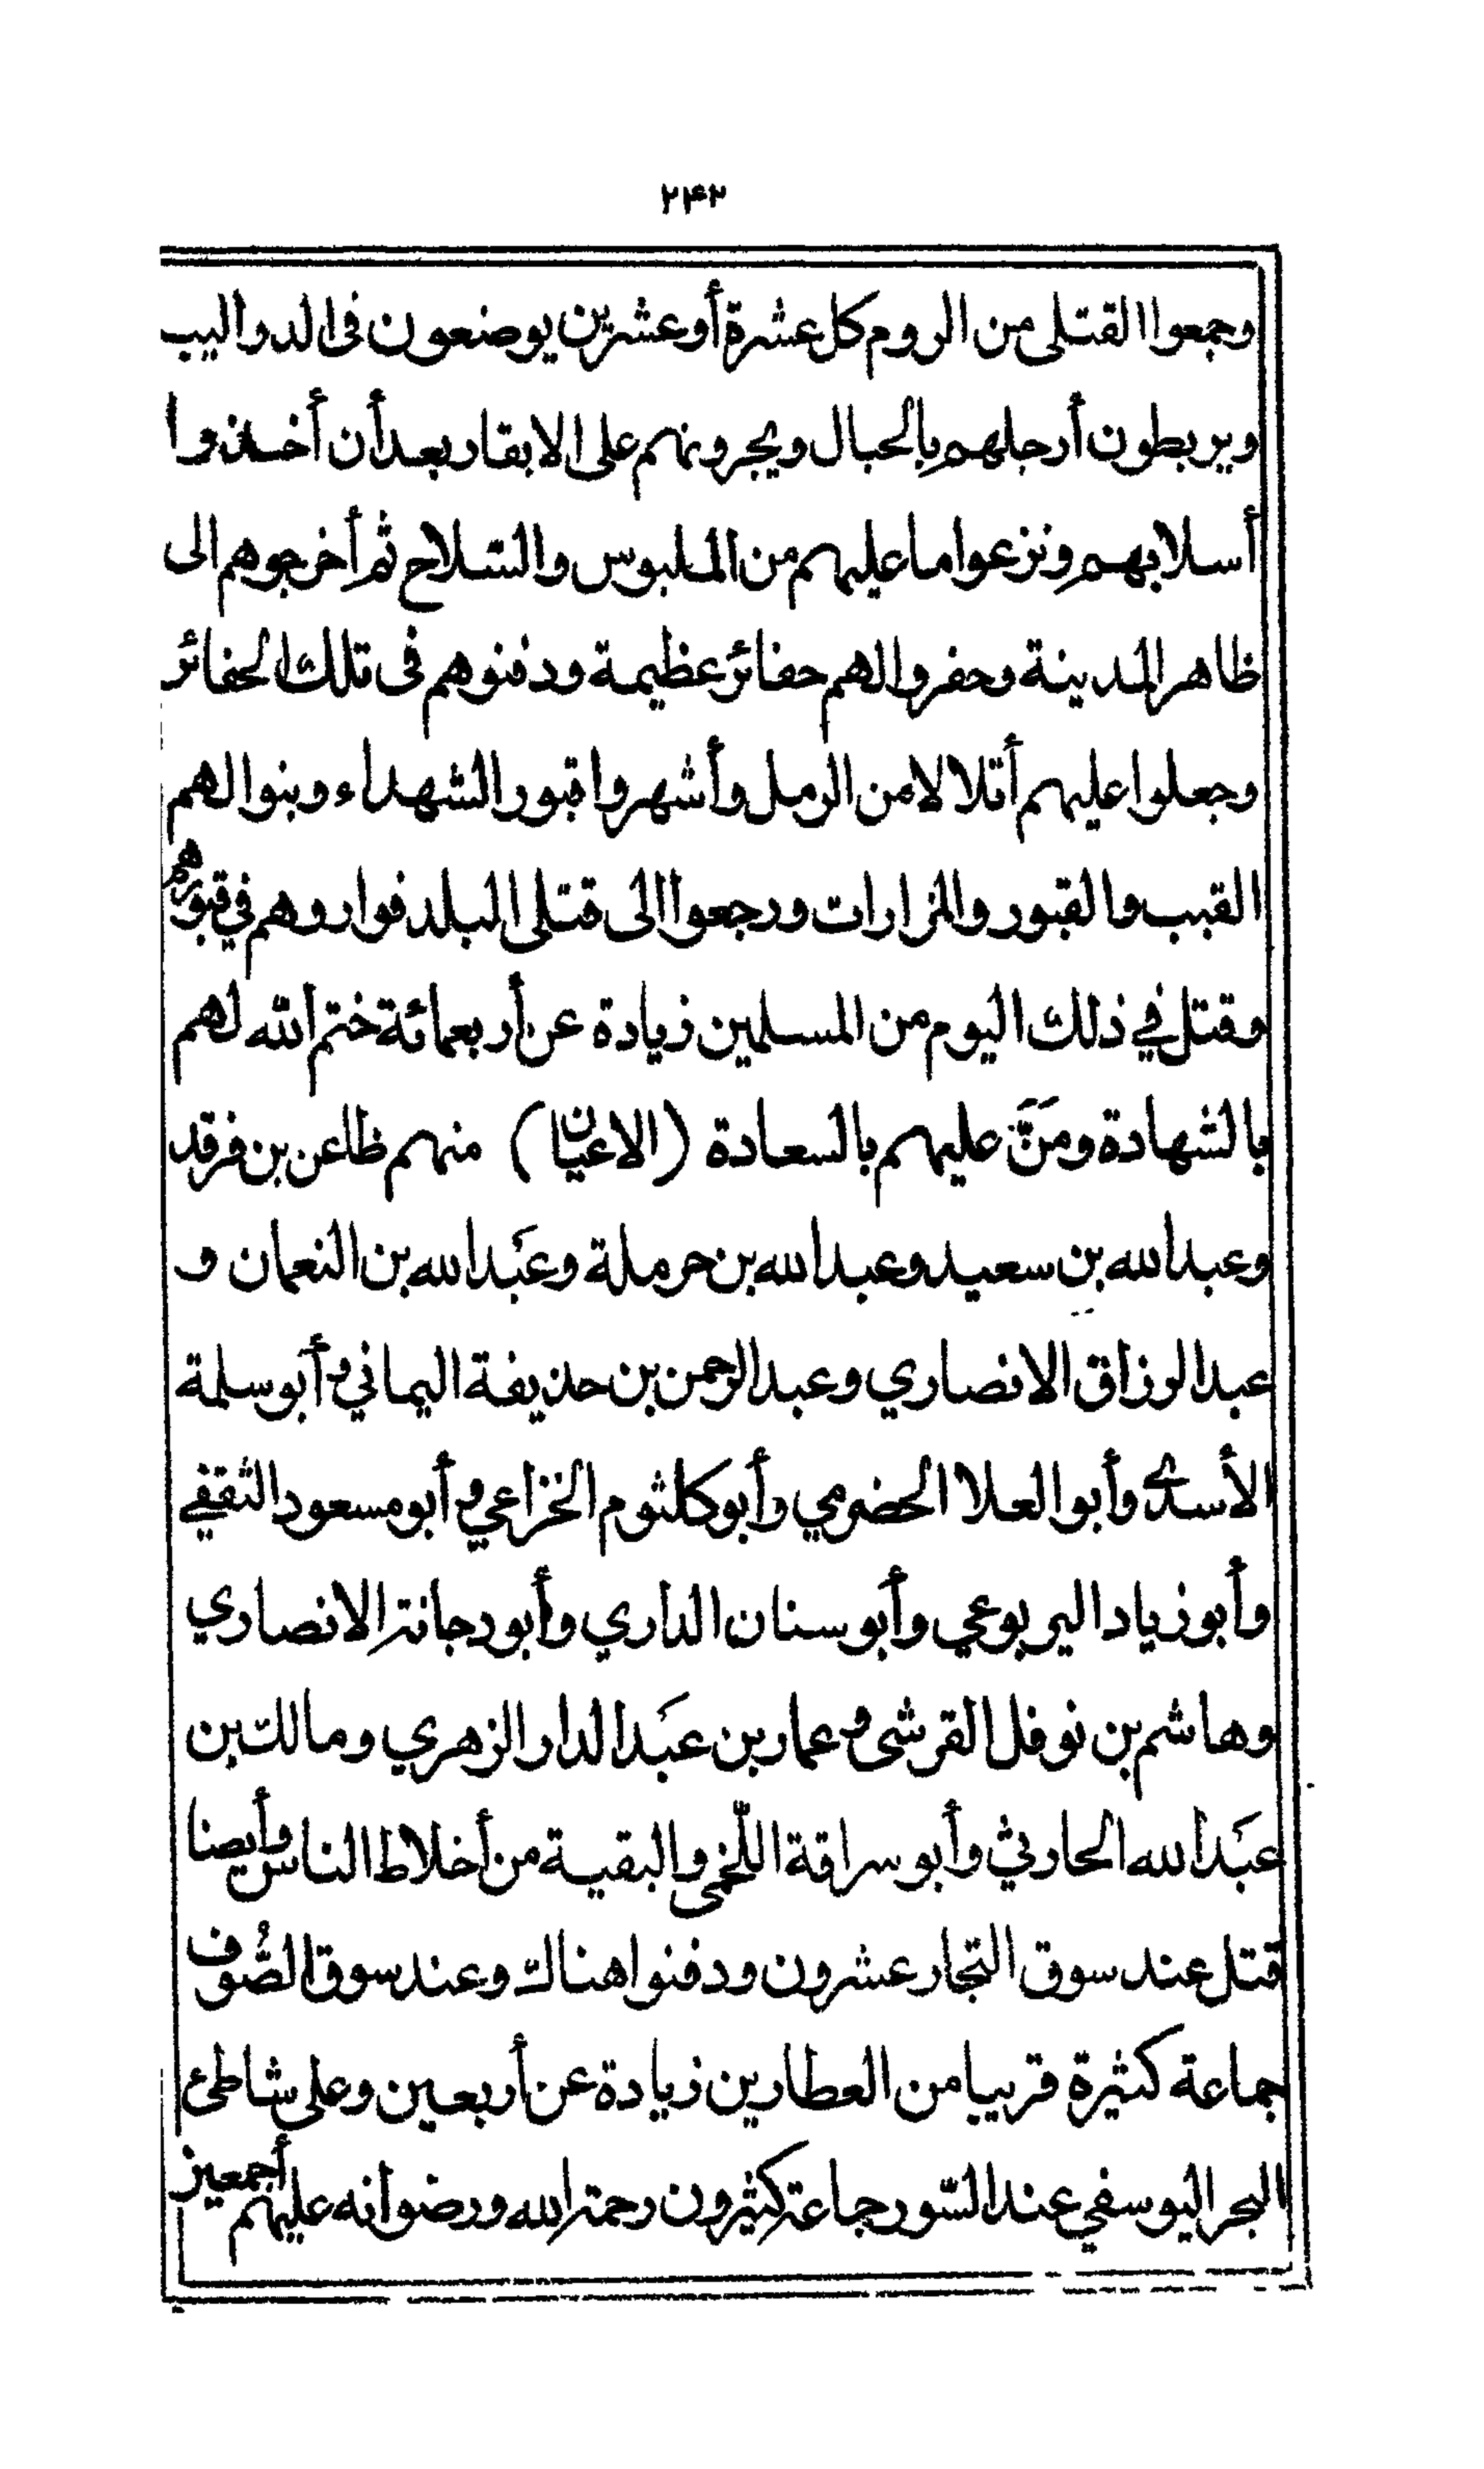 ٢٤٢
وجمعوا القتلى من الروم كل عشرة أو عشرين يوضعون فى الدواليب
ويربطون أرجلهم بالحبال ويجرونهم على الابقار بعد أن أخذوا
أسلابهم ونزعوا ما عليهم من الملبوس والسّلاح ثم أخرجوهم الى
ظاهر المدينة وحفروا لهم حفائر عظيمة ودفنوهم فى تلك الحفائر
وجعلوا عليهم أتلالا من الرمل وأشهروا قبور الشهداء وبنوا لهم
القبب والقبور والمزارات ورجعوا الى قتلى البلد فواروهم في قبورهم
وقتل في ذلك اليوم من المسلمين زيادة عن أربعمائة ختم الله لهم
بالشهادة ومَنَّ عليهم بالسعادة (الاعيان) منهم ظاعن بن فرقد
وعبد الله بن سعيد وعبد الله بن حرملة وعبَد الله بن النعمان و
عبد الرزاق الانصاري وعبد الرحمن بن حذيفة اليماني وأبو سلمة
الأسدى وأبو العلا الحضرمي وأبو كلثوم الخزاعي وأبو مسعود الثقفي
وأبو زياد اليربوعي وأبو سنان الداري وأبو دجانة الانصاري
وهاشم بن نوفل القرشى وعمار بن عبَد الدار الزهري ومالك بن
عبَد الله الحارثي وأبو سراقة اللّخمى والبقية من أخلاط الناس وأيضا
قتل عند سوق التجار عشرون ودفنوا هناك وعند سوق الصُّوف
جماعة كثيرة قريبا من العطارين زيادة عن أربعين وعلى شاطئ
البحر اليوسفي عند السّور جماعة كثيرون رحمة الله ورضوانه عليهم أجمعين